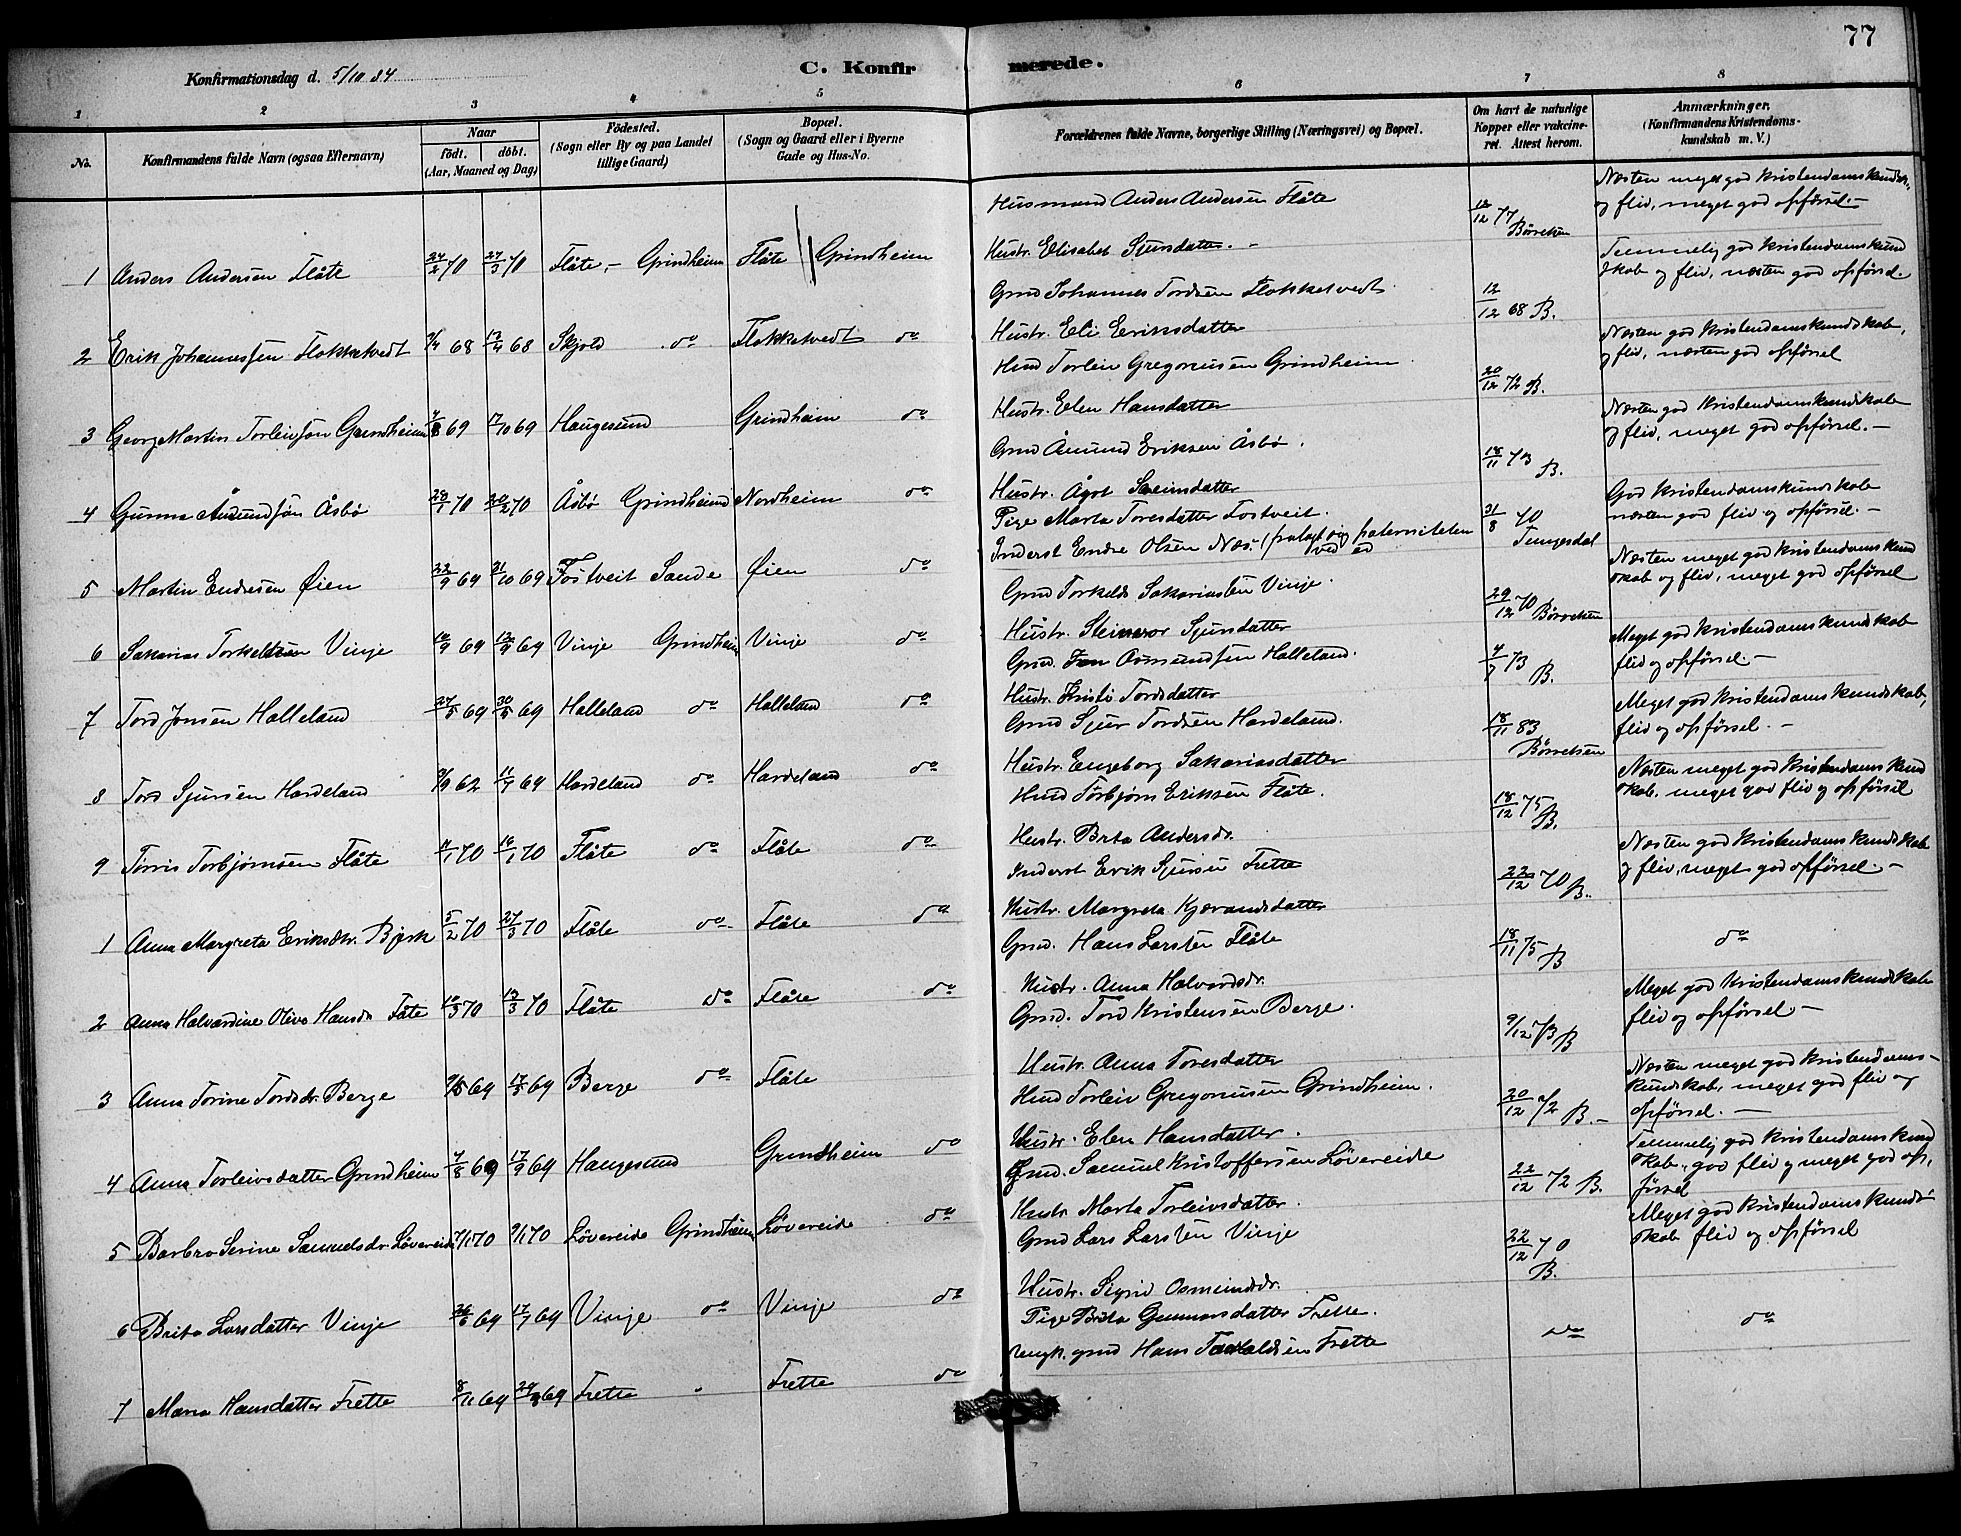 77
Konfirmationsdag d. 5/10 84
C. Konfirmerede.
1 2 3 4 5 6 7 8
No.
Konfirmandens fulde Navn (ogsaa Efternavn)
Naar
födt. döbt.
(Aar, Maaned og Dag)
Födested.
(Sogn eller By og paa Landet
tillige Gaard)
Bopæl.
(Sogn og Gaard eller i Byerne
Gade og Hus-No.
Forældrenes fulde Navne, borgerlige Stilling (Næringsvei) og Bopæl.
Om havt de naturlige
Kopper eller vakcine-
ret. Attest herom.
Anmærkninger.
(Konfirmandens Kristendoms-
kundskab m. V.)
1 Anders Andersen Flåte 24/2 70 27/3 70 Flåte, - Grindheim Flåte Grindheim
Husmand Anders Andersen Flåte
Hustr. Elisabet Sjursdatter. -
12/12 77 Børretsen
Næsten meget god Kristendomskundsk.
og flid, meget god opførsel. -
2 Erik Johannessen Flokketvedt 68 13/4 68 Skjold do Flokketvedt do
Grd Johannes Tordsen Flokketvedt
Hustr. Eli Eriksdatter
12/12 68 B.
Temmelig god Kristendomskund
skab og flid, næsten god opførsel.
3 Georg Martin Torleivsøn Grindheim 7/8 69 17/10 69 Haugesund Grindheim do
Hmd Torleiv Gregoriussen Grindheim
Hustr. Elen Hansdatter
20/12 72 B.
Næsten god Kristendomskundskab,
og flid, næsten god opførsel
4 Gunnar Åmundsøn Åsbø 28/1 70 20/2 70 Åsbø Grindheim Nordheim do
Grd Åmund Eriksen Åsbø.
Hustr. Ågot
18/11 73 B.
Næsten god Kristendomskundskab
og flid, meget god opførsel. -
5 Martin Endresen Øien 22/9 69 31/10 69 Fostveit Sande Øien do
Pige Marta Toresdatter Fostveit.
Inderst Endre Olsen Næs.
31/8 70 Tungesdal
God Kristendomskundskab
næsten god flid og opførsel. -
6 Sakarias Torkeldsen Vinje 69 69 Vinje Grindheim Vinje do
Grd Torkeld Sakariassen Vinje.
Hustr. Sjursdatter
29/12 70 Børretsen
Næsten meget god Kristendomskund
skab og flid, meget god opførsel
7 Tord Jonsen Halleland 27/5 69 30/5 69 Halleland do Halleland do
Grd. Jon Osmundsen Halleland.
Hustr. Kristi Tordsdatter
73 B.
Meget god Kristendomskundskab
flid og opførsel -
8 Tord Sjursen Hardeland 62 69 Hardeland do Hardeland do
Grd Sjur Tordsen Hardeland.
Hustr. Engeborg Sakariasdatter
18/11 83 Børretsen
Meget god Kristendomskundskab,
flid og opførsel. -
9 Torris Torbjørnsen Flåte 11/1 70 16/1 70 Flåte do Flåte do
Hmd Torbjørn Eriksen Flåte.
Hustr. Brita Andersdr.
18/12 75 B.
Næsten meget god Kristendomskund
skab, meget god flid og opførsel
1 Anna Margreta Eriksdtr. Bjørk 5/2 70 27/3 70 Flåte do Flåte do
Inderst Erik Sjursen Frette
Hustr. Margreta Kjærandsdatter
22/12 70 B.
Næsten god Kristendomskundskab
og flid, meget god opførsel. -
2 Anna Halvardine Olive Hansdr Flåte 10/3 70 13/3 70 Flåte do Flåte do
Grd. Hans Larsen Flåte
Hustr. Anna Halvordsdr.
18/11 75 B
do
3 Anna Torine Tordsdr. Berge 69 69 Berge do Flåte
Grd. Tord Kristensen Berge.
Hustr. Anna Toresdatter
9/12 73 B
Meget god Kristendomskundskab
flid og opførsel -
4 Anna Torleivsdatter Grindheim 7/8 69 17/9 69 Haugesund Grindheim do
Hmd Torleiv Gregoriussen Grindheim.
Hustr. Elen Hansdatter.
20/12 72 B. -
Næsten meget god Kristendoms-
kundskab, meget god flid og
opførsel. -
5 Barbro Serine Samuelsdr Løvereide 7/1 70 9/1 70 Løvereide Grindheim Løvereide do
Grd. Samuel Kristoffersen Løvereide
Hustr Marta Torleivsdatter.
22/12 72 B.
Temmelig god Kristendomskund
skab, god flid og meget god op,
førsel
6 Brita Larsdatter Vinje 26/6 69 17/7 69 Vinje do Vinje do
Grd Lars Larsen Vinje
Hustr. Sigrid Osmundsdr.
22/12 70 B.
Meget god Kristendomskunds-
skab flid og opførsel
7 Maria Hansdatter Frette 69 69 Frette Frette do
Pige Brita Gunnarsdatter Frette.
Ungk. grd Hans Frette
do
do